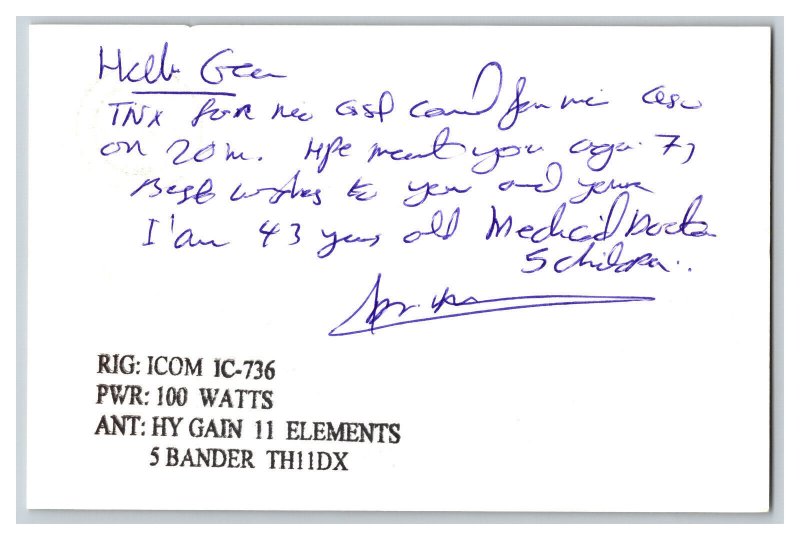 Hello Gen
TNX for nic QSL card for nic QSO
on 20m. Hpe meet you again 73
Best wishes to you and yours
I'am 43 years old Medical Doctor
5 children..
RIG: ICOM IC-736
PWR: 100 WATTS
ANT: HY GAIN 11 ELEMENTS
5 BANDER TH11DX